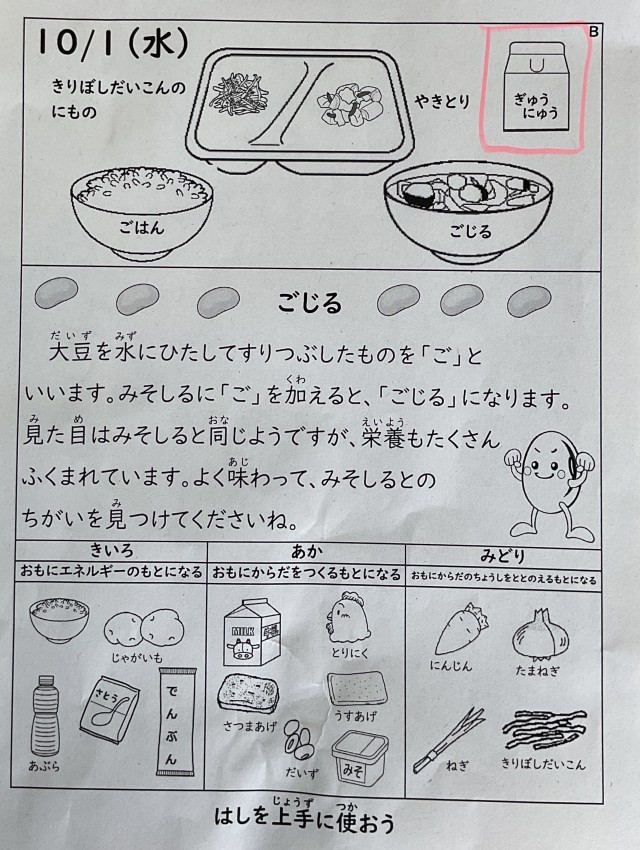 10/1(水)
B
きりぼしだいこんの
にもの
やきとり
ぎゅう
にゅう
ごはん
ごじる
ごじる
だいず みず
大豆を水にひたしてすりつぶしたものを「ご」と
くわ
いいます。みそしるに「ご」を加えると、「ごじる」になります。
み め おな えいよう
見た目はみそしると同じようですが、栄養もたくさん
あじ
ふくまれています。よく味わって、みそしるとの
み
ちがいを見つけてくださいね。
きいろ
おもにエネルギーのもとになる
じゃがいも
さとう
でんぷん
あぶら
あか
おもにからだをつくるもとになる
MILK
とりにく
さつまあげ
うすあげ
だいず
みそ
みどり
おもにからだのちょうしをととのえるもとになる
にんじん
たまねぎ
ねぎ
きりぼしだいこん
じょうず つか
はしを上手に使おう